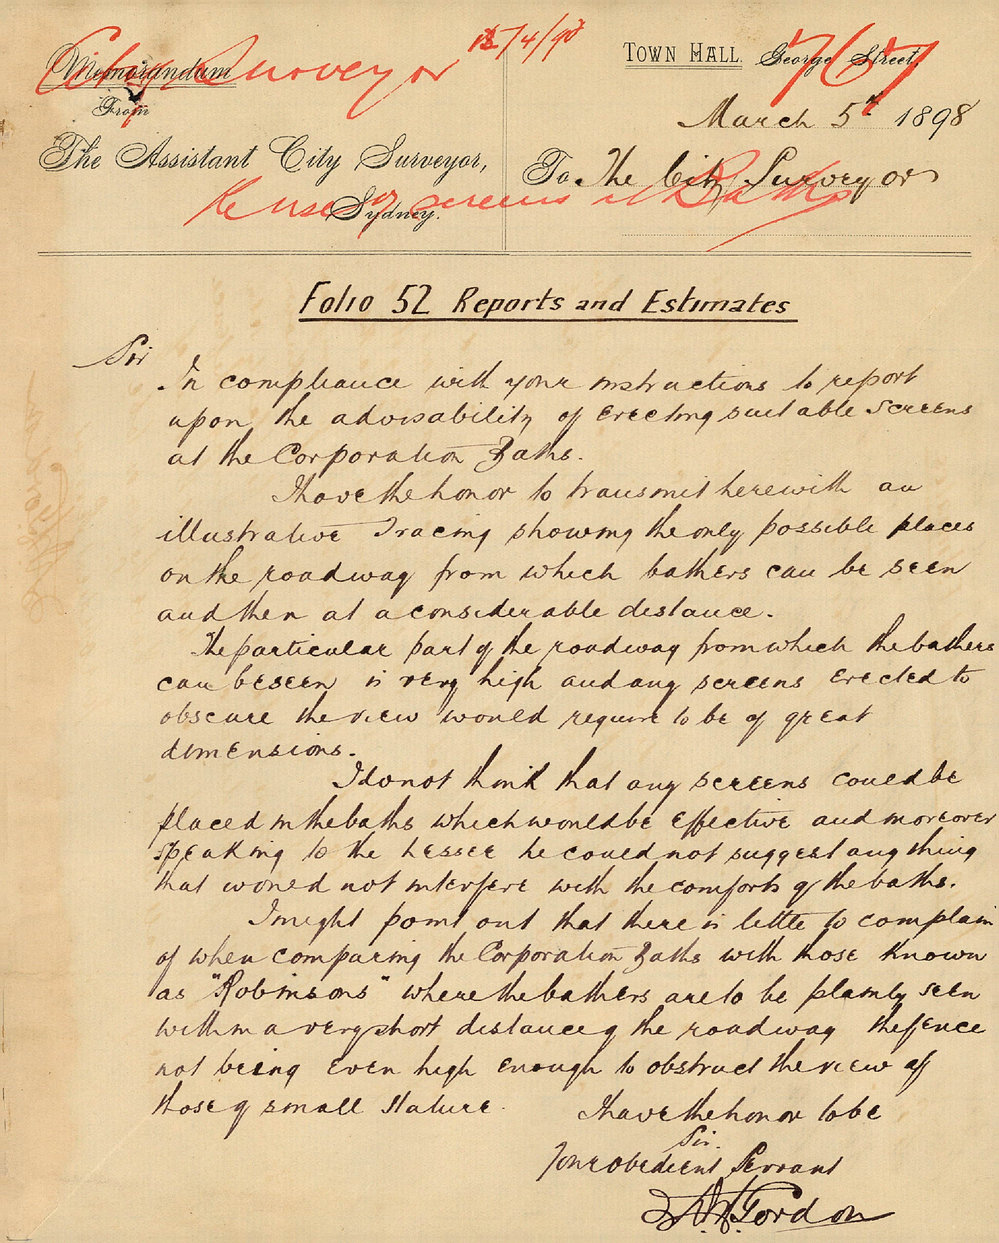 City Surveyor
12/4/98
767
Memorandum
From
The Assistant City Surveyor,
Sydney.
Town Hall George Street,
March 5th 1898
To The City Surveyor
Re use of screens at Baths
Folio 52 Reports and Estimates
Sir
In compliance with your instructions to report
upon the advisability of erecting suitable screens
at the Corporation Baths.
I have the honor to transmit herewith an
illustrative Tracing showing the only possible places
on the roadway from which bathers can be seen
and then at a considerable distance.
The particular part of the roadway from which the bathers
can be seen is very high and any screens erected to
obscure the view would require to be of great
dimensions.
I do not think that any screens could be
placed in the baths which would be effective and moreover
speaking to the Lessee he could not suggest any thing
that would not interfere with the comforts of the baths.
I might point out that there is little to complain
of when comparing the Corporation Baths with those known
as "Robinsons" where the bathers are to be plainly seen
within a very short distance of the roadway the fence
not being even high enough to obstruct the view of
those of small stature.
I have the honor to be
Sir.
Your obedient Servant
Gordon